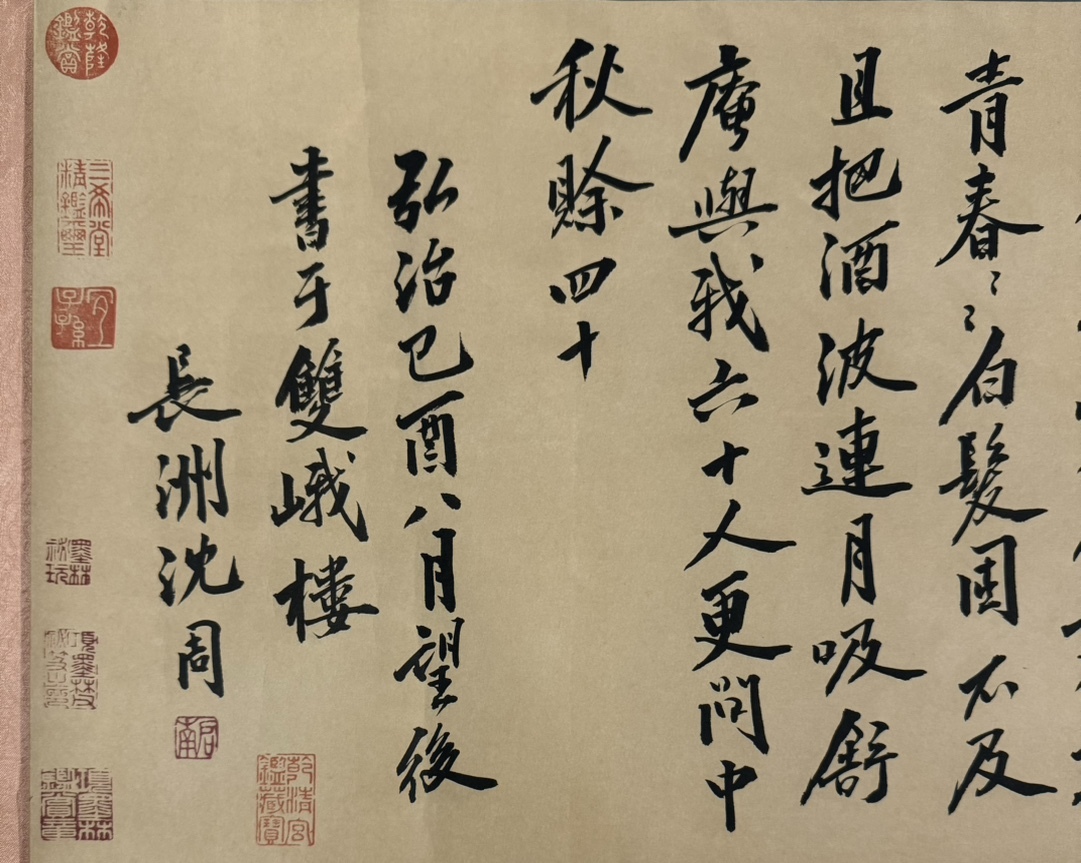 青春〻〻白髮固不及
且把酒波連月吸舒
庵與我六十人更問中
秋賒四十
弘治己酉八月望後
書于雙峨樓
長洲沈周
啓南
乾清宮鑑藏寶
乾隆鑑賞
三希堂精鑑璽
宜子孫
墨林秘玩
項墨林鑑賞章